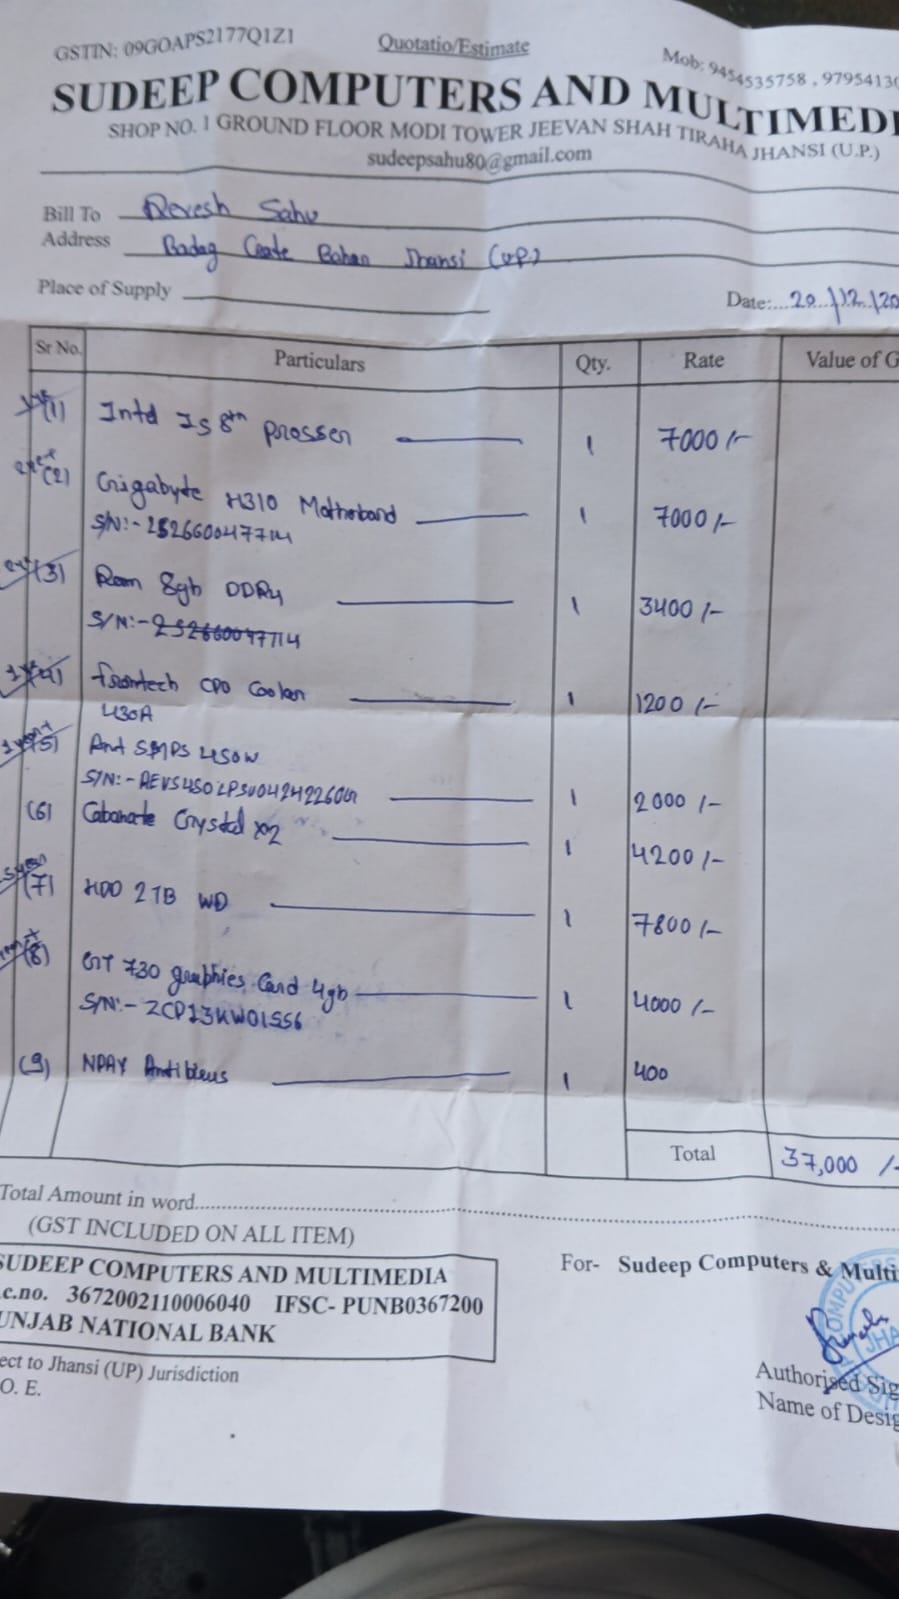 GSTIN: 09GOAPS2177Q1Z1 Quotatio/Estimate Mob: 9454535758 , 97954130
SUDEEP COMPUTERS AND MULTIMEDI
SHOP NO. 1 GROUND FLOOR MODI TOWER JEEVAN SHAH TIRAHA JHANSI (U.P.)
sudeepsahu80@gmail.com
Bill To Devesh Sahu
Address Gate Jhansi (U.P.)
Place of Supply
Date:...20../12../20
Sr No. Particulars Qty. Rate Value of G
(1) Intel I5 8th prosser 1 7000 /-
(2) Gigabyte H310 Motherboard 1 7000 /-
S/N:-
(3) Ram 8gb DDR4 1 3400 /-
S/N:- 252660047714
(4) frontech CPU Cooler 1 1200 /-
430A
(5) Ant SMPS 450W
S/N:- 1 2000 /-
(6) Cabanate Crystal x2 1 4200 /-
(7) HDD 2TB WD 1 7800 /-
(8) GT 730 graphies Card 4gb 1 4000 /-
S/N:- ZCP13KW01556
(9) NPAV Antibieus 1 400
Total 37,000 /-
Total Amount in word
(GST INCLUDED ON ALL ITEM)
SUDEEP COMPUTERS AND MULTIMEDIA
.c.no. 3672002110006040 IFSC- PUNB0367200
UNJAB NATIONAL BANK
For- Sudeep Computers & Multi
ect to Jhansi (UP) Jurisdiction
O. E.
Authorised Sig
Name of Desig